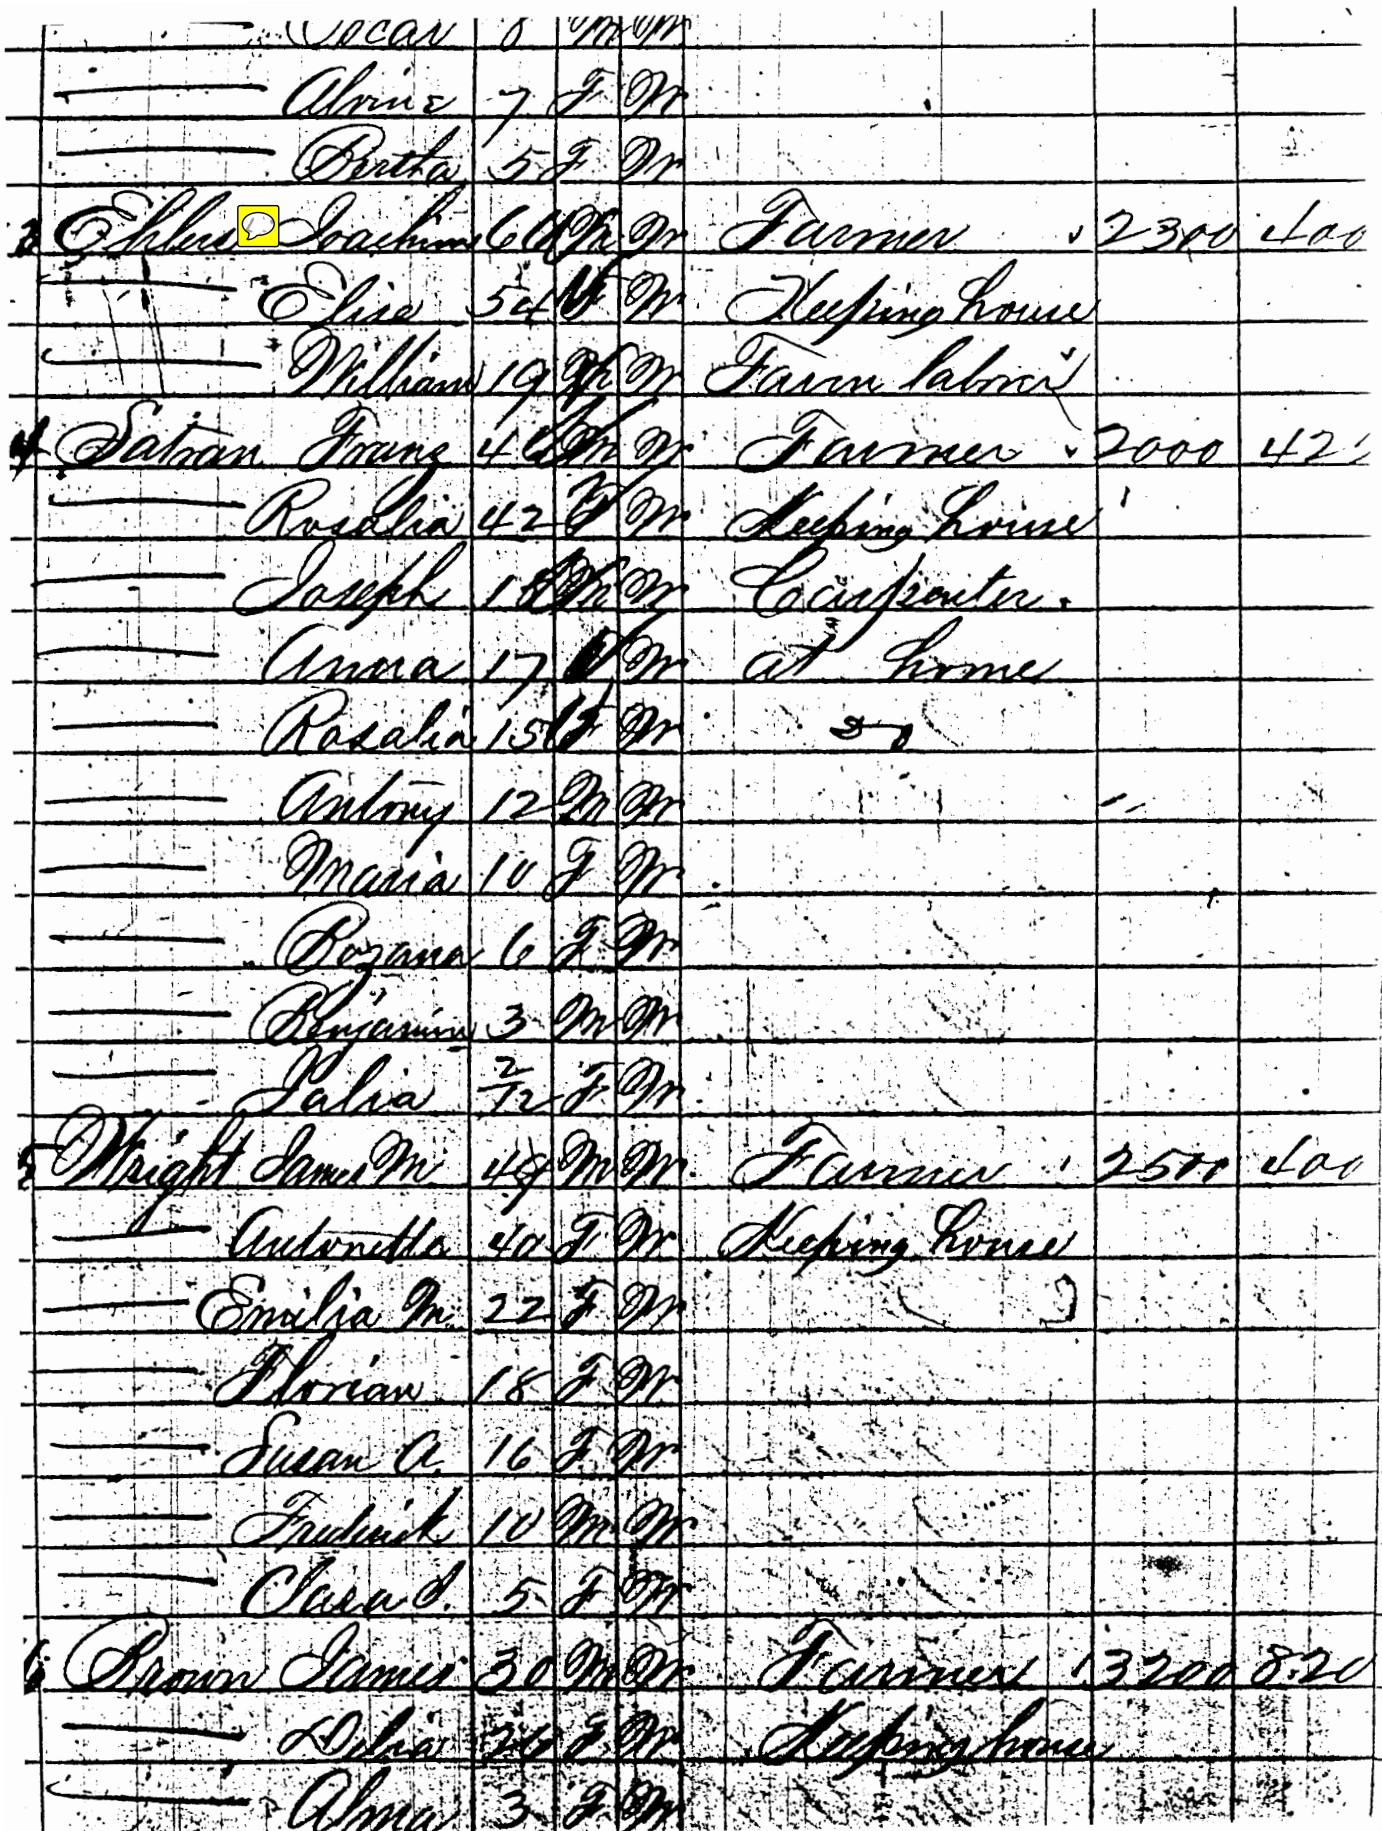 Oscar 8 M W
Alvine 7 F W
Bertha 5 F W
3 Ehlers Joachim 60 M W Farmer 2300 400
Elise 54 F W Keeping house
William 19 M W Farm labor
4 Satran Franz 46 M W Farmer 2000 42
Rosalia 42 F W Keeping house
Joseph 18 M W Carpenter
Anna 17 F W at home
Rosalia 15 F W Do
Antony 12 M W
Maria 10 F W
Rozana 6 F W
Benjamin 3 M W
Julia 2/12 F W
5 Wright James M 49 M W Farmer 2500 400
Antonetta 40 F W Keeping house
Emilia M. 22 F W
Florian 18 F W
Susan A. 16 F W
Frederick 10 M W
Clara 5 F W
6 Brown James 30 M W Farmer 3200 820
Delia 26 F W Keeping house
Alma 3 F W